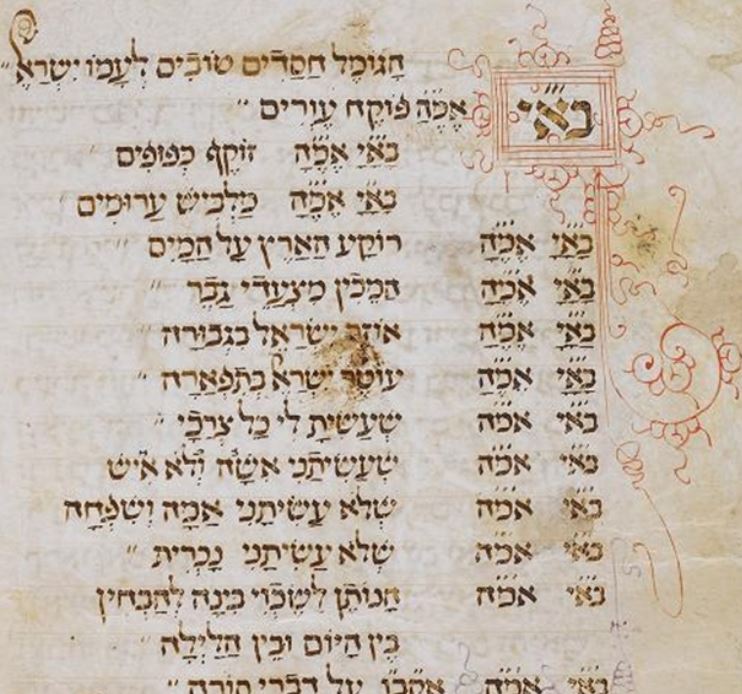 הגומל חסדים טובים לעמו ישראל
באי אמה פוקח עורים
באי אמה זוקף כפופים
באי אמה מלביש ערומים
באי אמה רוקע הארץ על המים
באי אמה המכין מצעדי גבר
באי אמה אוזר ישראל בגבורה
באי אמה עוטר ישרא בתפארה
באי אמה שעשית לי כל צרכי
באי אמה שעשיתני אשה ולא איש
באי אמה שלא עשיתני אמה ושפחה
באי אמה שלא עשיתני נכרית
באי אמה הנותן לשכוי בינה להבחין
בין היום ובין הלילה
באי אמה אקבו על דברי תורה